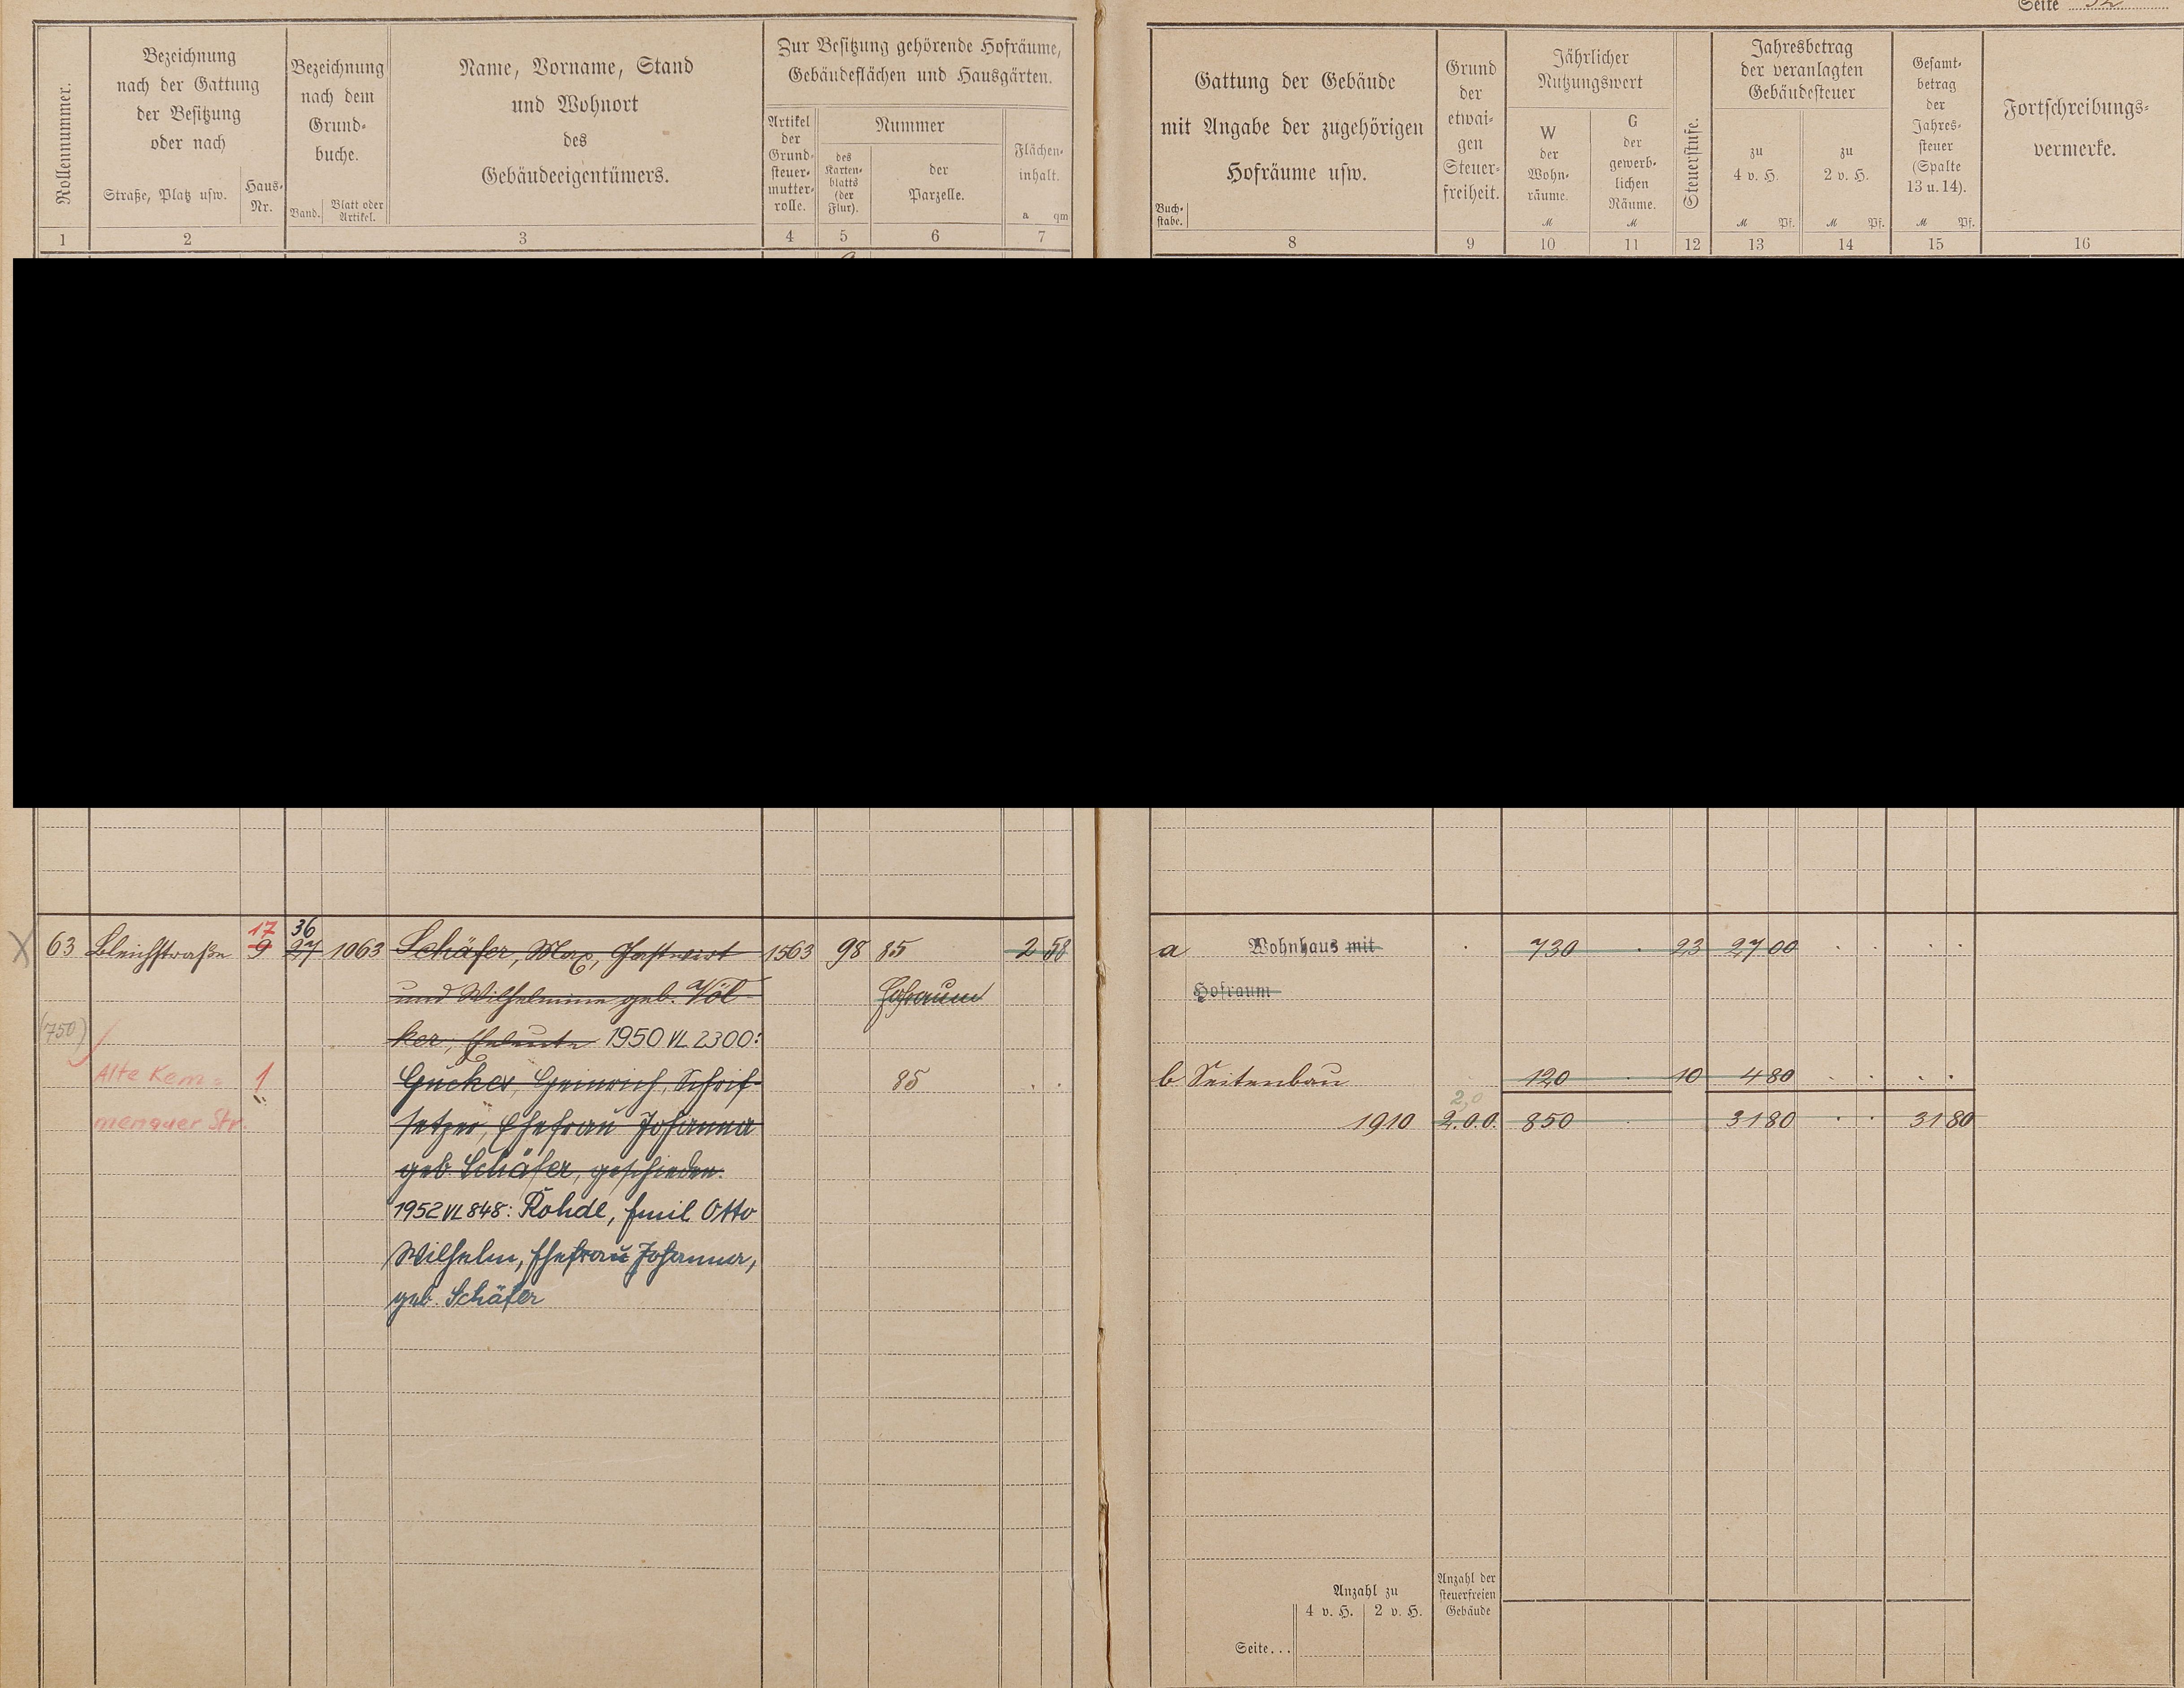 Seite
Rollennummer.
Bezeichnung
nach der Gattung
der Besitzung
oder nach
Straße, Platz usw.
Haus-
Nr.
Bezeichnung
nach dem
Grund-
buche.
Band.
Blatt oder
Artikel.
Name, Vorname, Stand
und Wohnort
des
Gebäudeeigentümers.
Zur Besitzung gehörende Hofräume,
Gebäudeflächen und Hausgärten.
Artikel
der
Grund-
steuer-
mutter-
rolle.
Nummer
des
Karten-
blatts
(der
Flur).
der
Parzelle.
Flächen-
inhalt.
a qm
1 2 3 4 5 6 7
Gattung der Gebäude
mit Angabe der zugehörigen
Hofräume usw.
Buch-
stabe.
Grund
der
etwai-
gen
Steuer-
freiheit.
Jährlicher
Nutzungswert
W
der
Wohn-
räume.
M
G
der
gewerb-
lichen
Räume.
M
Steuerstufe.
Jahresbetrag
der veranlagten
Gebäudesteuer
zu
4 v. H.
M Pf.
zu
2 v. H.
M Pf.
Gesamt-
betrag
der
Jahres-
steuer
(Spalte
13 u. 14).
M Pf.
Fortschreibungs-
vermerke.
8 9 10 11 12 13 14 15 16
17 36
X 63 Bleichstraße 9 27 1063 Schäfer, Max, Gastwirt 1563 98 85 2 58
und Wilhelmine geb. Völ- Hofraum
(750) ker, Eheleute 1950 VL 2300:
Alte Kem- 1 Gücker, Heinrich, Schrif- 85
menauer Str. setzer, Ehefrau Johanna
geb. Schäfer, geschieden.
1952 VL 848: Rohde, Emil Otto
Wilhelm, Ehefrau Johanna,
geb. Schäfer
a Wohnhaus mit 730 23 27 00
Hofraum
b Seitenbau 120 10 4 80
2,0
1910 2.0.0. 850 31 80 31 80
Anzahl zu
4 v. H. 2 v. H.
Anzahl der
steuerfreien
Gebäude
Seite...